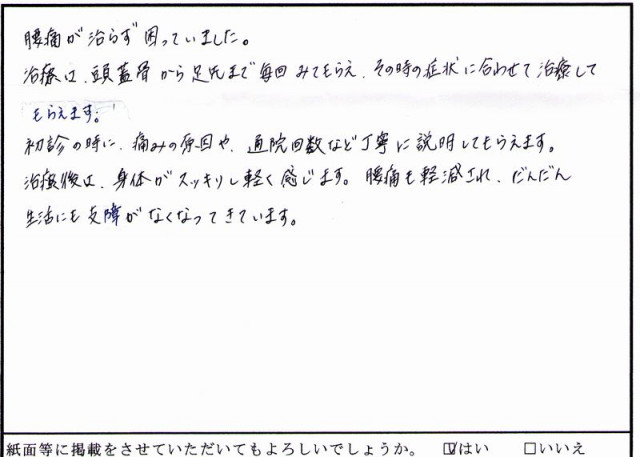 腰痛が治らず困っていました。
治療は、頭蓋骨から足先まで毎回みてもらえ、その時の症状に合わせて治療して
もらえます。
初診の時に、痛みの原因や、通院回数など丁寧に説明してもらえます。
治療後は、身体がスッキリし軽く感じます。腰痛も軽減され、だんだん
生活にも支障がなくなってきています。
紙面等に掲載をさせていただいてもよろしいでしょうか。 ☑はい □いいえ